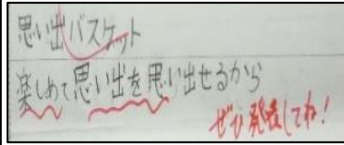 思い出バスケット
楽しめて思い出を思い出せるから
ぜひ発表してね!